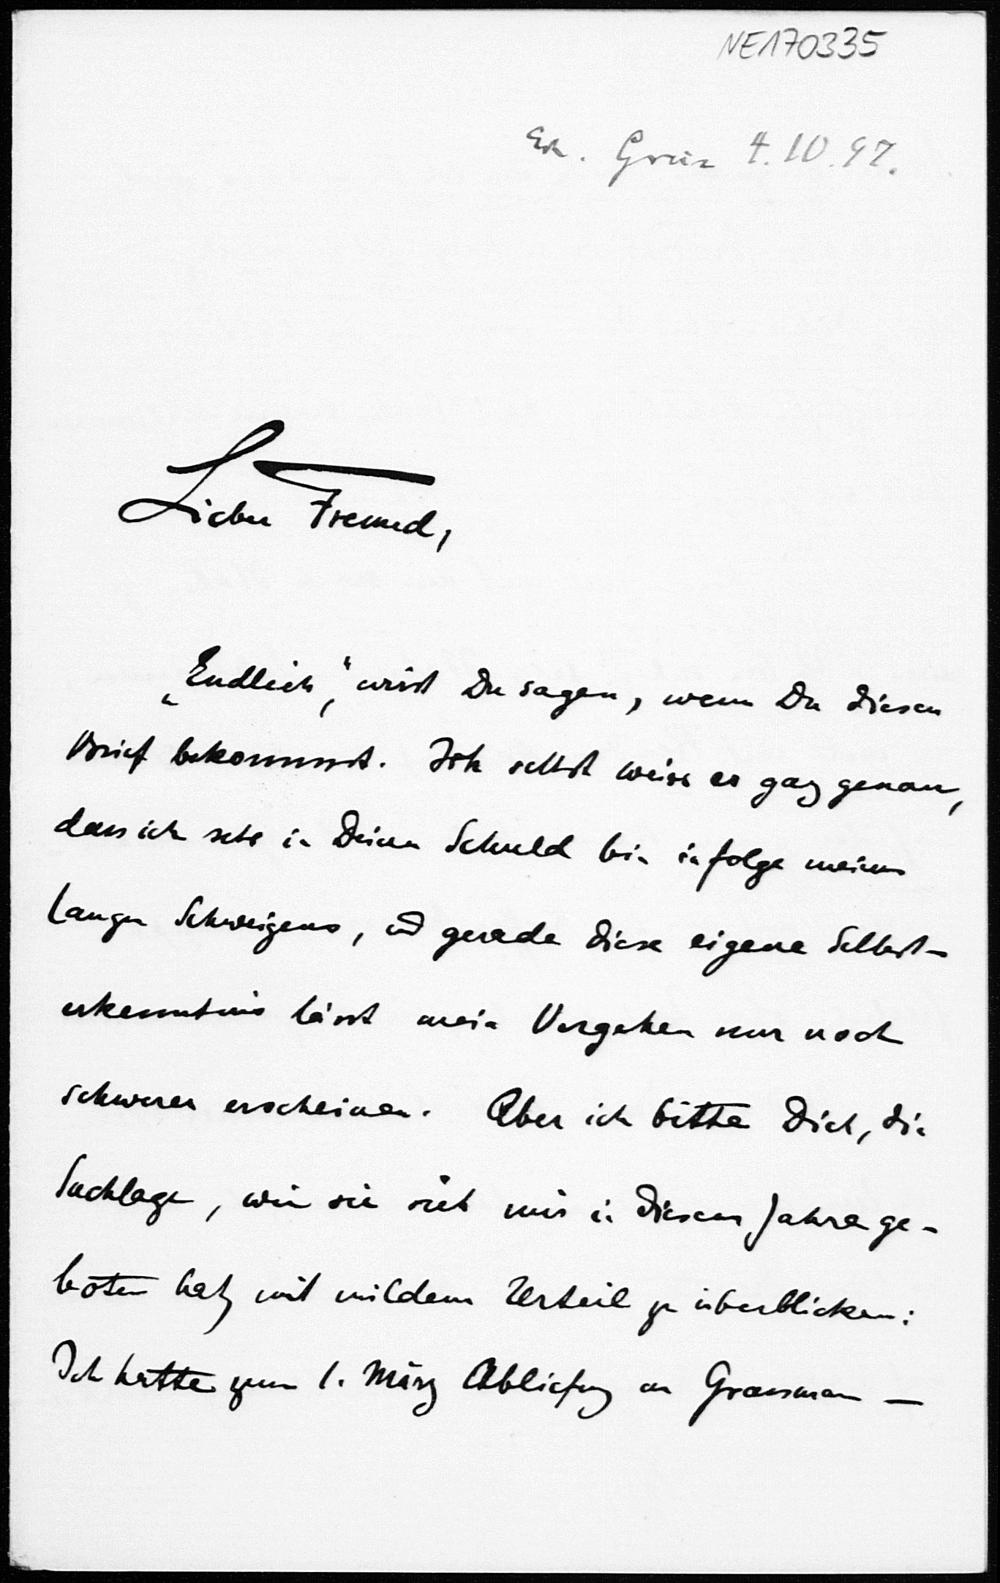 NE170335
4.10.97.
Lieber Freund,
„Endlich,“ wirst Du sagen, wenn Du diesen
Brief bekommst. Ich selbst weiss es ganz genau,
dass ich sehr in Deiner Schuld bin infolge meines
langen Schweigens, und gerade diese eigene Selbst-
erkenntnis lässt mein Vergehen nur noch
schwerer erscheinen. Aber ich bitte Dich, die
Sachlage, wie sie sich mir in diesem Jahre ge-
boten hat, mit mildem Urteil zu überblicken:
Ich hatte zum 1. März Ablieferung an Grausman —